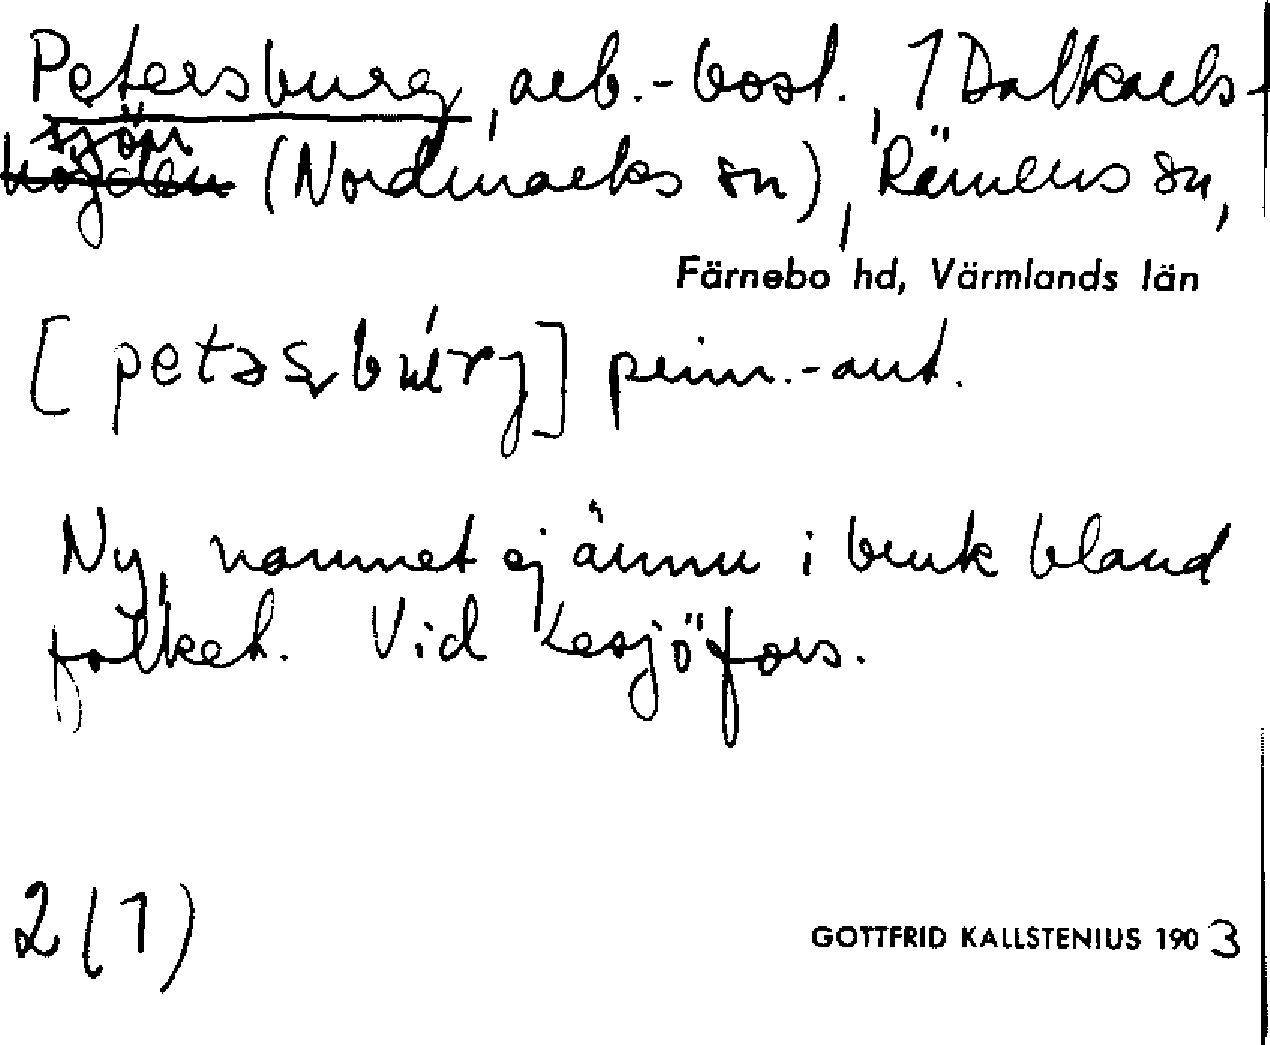 Petersburg, arb.-bost., 1 Dalkarls-
sjön
höjden (Nordmarks sn), Rämens sn,
Färnebo hd, Värmlands län
[petəʂbúrj] perm.-ant.
Ny, namnet ej ännu i bruk bland
folket. Vid Lesjöfors.
2(1)
GOTTFRID KALLSTENIUS 1903